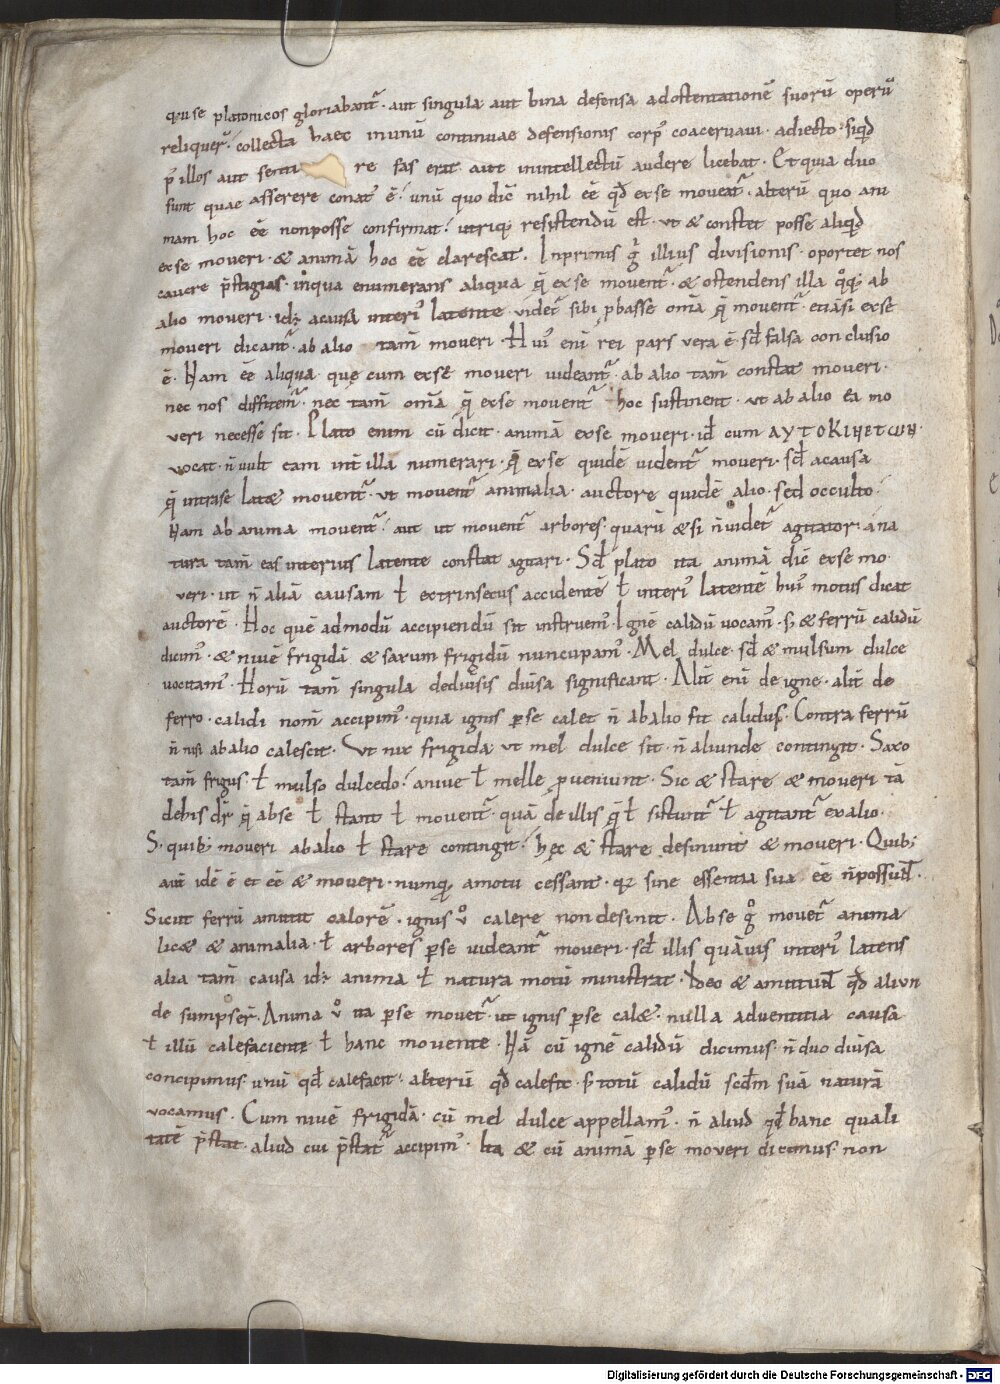 qui se platonicos gloriabant᷑ · aut singula aut bina defensa ad ostentationē suorū operū
reliquer̄ · collecta haec in unū continuae defensionis corp᷒ coaceruaui · adiecto siqd̄
p᷒ illos aut senti re fas erat aut in intellectū audere licebat · Et quia duo
sunt quae asserere conat᷑ ē · unū quo dic̄ nihil eē qd̄ ex se moueat᷑ · alterū quo ani
mam hoc eē non posse confirmat · utriq; resistendū est · ut & constet posse aliqd̄
ex se moueri · & animā hoc eē clarescat · Inprimis g̊ illius diuisionis · oportet nos
cauere p̄stigias · in qua enumerans aliqua q̄ ex se mouent᷑ · & ostendens illa qͦq; ab
alio moueri · idꝫ a causa interi᷒ latente uidet᷑ sibi p̱basse om̄a q̄ mouent᷑ · etiāsi ex se
moueri dicant᷑ · ab alio tam̄ moueri · Hui᷒ eni rei pars uera ē · sd̄ falsa conclusio
ē · Nam eē aliqua que cum ex se moueri uideant᷑ · ab alio tam̄ constat moueri ·
nec nos diffitem᷑ · nec tam̄ om̄a q̄ ex se mouent᷑ hoc sustinent · ut ab alio ea mo
ueri necesse sit · Plato enim cū dicit · animā ex se moueri · id ē cum ΑΥΤΟΚΙΝΕΤωΝ ·
uocat · n̄ uult eam int̄ illa numerari · q̄ ex se quidē uident᷑ moueri · sd̄ a causa
q̄ intra se lat& mouent᷑ · ut mouent᷑ animalia · auctore quidē alio · sed occulto ·
Nam ab anima mouent᷑ · aut ut mouent᷑ arbores · quarū & si n̄ uidet᷑ agitator · a na
tura tam̄ eas interius latente constat agitari · Sd̄ plato ita animā dic̄ ex se mo
ueri · ut n̄ aliā causam ł extrinsecus accidentē ł interi᷒ latentē hui᷒ motus dicat
auctorē · Hoc quē admodū accipiendū sit instruem᷒ · Ignē calidū uocam᷒ · s; & ferrū calidū
dicim᷒ · & niuē frigidā & saxum frigidū nuncupam᷒ · Mel dulce · sd̄ & mulsum dulce
uocitam᷒ · Horū tam̄ singula de diuisis diuisa significant · Alit̄ eni de igne · alit̄ de
ferro · calidi nom̄ accipim᷒ · quia ignis p̱ se calet n̄ ab alio fit calidus · Contra ferrū
n̄ nisi ab alio calescit · Ut nix frigida ut mel dulce sit · n̄ aliunde contingit · Saxo
tam̄ frigus · ł mulso dulcedo · a niue ł melle p̱ueniunt · Sic & stare & moueri tā
de his dr̄ q̄ ab se ł stant ł mouent᷑ · quā de illis q̄ ł sistunt᷑ ł agitant᷑ ex alio ·
S; quib; moueri ab alio ł stare contingit · hęc & stare desinunt & moueri · Quib;
aūt idē ē et eē & moueri · nunq; a motu cessant · qꝫ sine essentia sua eē n̄ possunt ·
Sicut ferrū amittit calorē · ignis u᷒ calere non desinit · Ab se g̊ mouet᷑ anima
lic& & animalia · ł arbores p̱ se uideant᷑ moueri · sd̄ illis quāuis interi᷒ latens
alia tam̄ causa idꝫ anima ł natura motū ministrat · Ideo & amittunt qd̄ aliun
de sumpser̄ · Anima u᷒ ita p̱ se mouet᷑ · ut ignis p̱ se cal& · nulla aduentitia causa
ł illū calefaciente ł hanc mouente · Nā cū ignē calidū dicimus · n̄ duo diuisa
concipimus · unū qd̄ calefacit · alterū qd̄ calefit · s; totū calidū scdm̄ suā naturā
uocamus · Cum niuē frigidā · cū mel dulce appellam᷒ · n̄ aliud qd̄ hanc quali
tatē p̄stat · aliud cui p̄stat᷑ accipim᷒ · Ita & cū animā p̱ se moueri dicimus · non
Digitalisierung gefördert durch die Deutsche Forschungsgemeinschaft - DFG